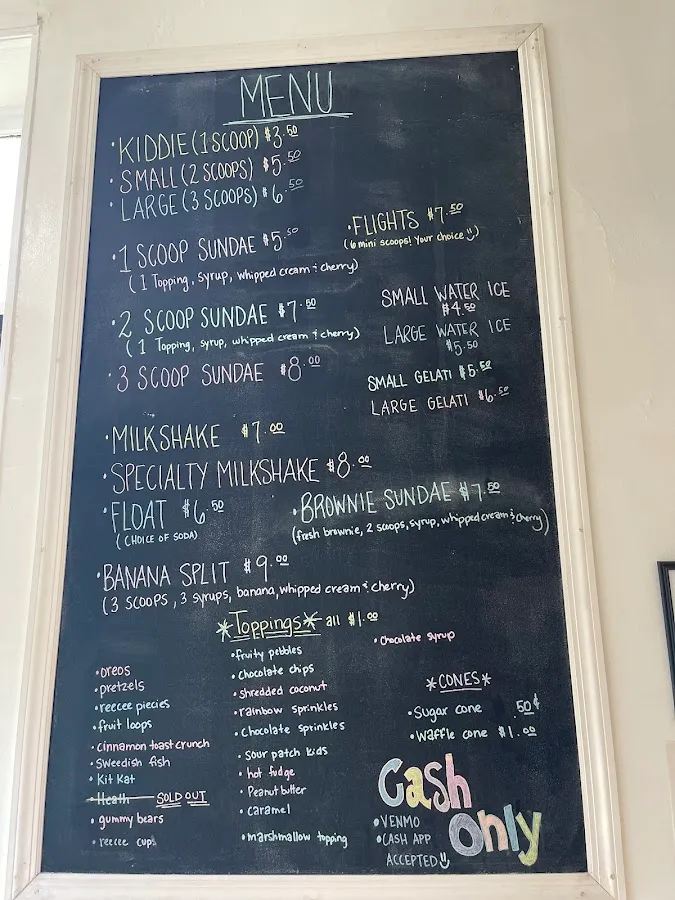 MENU
• KIDDIE (1 SCOOP) $3.50
• SMALL (2 SCOOPS) $5.50
• LARGE (3 SCOOPS) $6.50
• FLIGHTS $7.50
(6 mini scoops! Your choice)
• 1 SCOOP SUNDAE $5.50
(1 Topping, syrup, whipped cream & cherry)
• 2 SCOOP SUNDAE $7.50
(1 Topping, syrup, whipped cream & cherry)
• 3 SCOOP SUNDAE $8.00
SMALL WATER ICE
$4.50
LARGE WATER ICE
$5.50
SMALL GELATI $5.50
LARGE GELATI $6.50
• MILKSHAKE $7.00
• SPECIALTY MILKSHAKE $8.00
• FLOAT $6.50
(CHOICE OF SODA)
• BROWNIE SUNDAE $7.50
(fresh brownie, 2 scoops, syrup, whipped cream & cherry)
• BANANA SPLIT $9.00
(3 SCOOPS, 3 syrups, banana, whipped cream & cherry)
*Toppings* all $1.00
• oreos
• pretzels
• reecee piecies
• fruit loops
• cinnamon toast crunch
• Swedish fish
• Kit Kat
• Heath SOLD OUT
• gummy bears
• reecee cups
• fruity pebbles
• chocolate chips
• shredded coconut
• rainbow sprinkles
• chocolate sprinkles
• sour patch kids
• hot fudge
• Peanut butter
• caramel
• marshmallow topping
• chocolate syrup
*CONES*
• Sugar cone .50¢
• Waffle cone $1.00
Cash
Only
• VENMO
• CASH APP
ACCEPTED